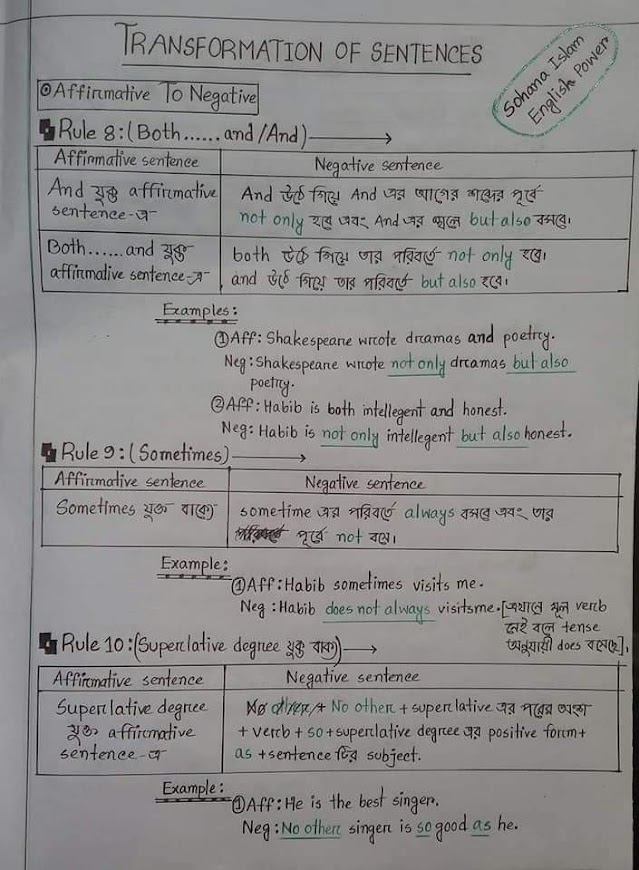 TRANSFORMATION OF SENTENCES
Sohana Islam
English Power
Affirmative To Negative
Rule 8:(Both......and/And)
Affirmative sentence Negative sentence
And যুক্ত affirmative And উঠে গিয়ে And এর আগের শব্দের পূর্বে
sentence-এ not only হবে এবং And এর স্থলে but also বসবে।
Both......and যুক্ত both উঠে গিয়ে তার পরিবর্তে not only হবে।
affirmative sentence-এ and উঠে গিয়ে তার পরিবর্তে but also হবে।
Examples:
①Aff: Shakespeare wrote dramas and poetry.
Neg: Shakespeare wrote not only dramas but also
poetry.
②Aff: Habib is both intellegent and honest.
Neg: Habib is not only intellegent but also honest.
Rule 9:(Sometimes)
Affirmative sentence Negative sentence
Sometimes যুক্ত বাক্যে sometime এর পরিবর্তে always বসবে এবং তার
পূর্বে not বসে।
Example:
①Aff: Habib sometimes visits me.
Neg: Habib does not always visitsme. [এখানে মূল verb
নেই বলে tense
অনুযায়ী does বসেছে].
Rule 10:(Superlative degree যুক্ত বাক্য)
Affirmative sentence Negative sentence
Superlative degree No other + superlative এর পরের অংশ
যুক্ত affirmative + verb + so + superlative degree এর positive form+
sentence-এ as + sentence টির subject.
Example:
①Aff: He is the best singer.
Neg: No other singer is so good as he.